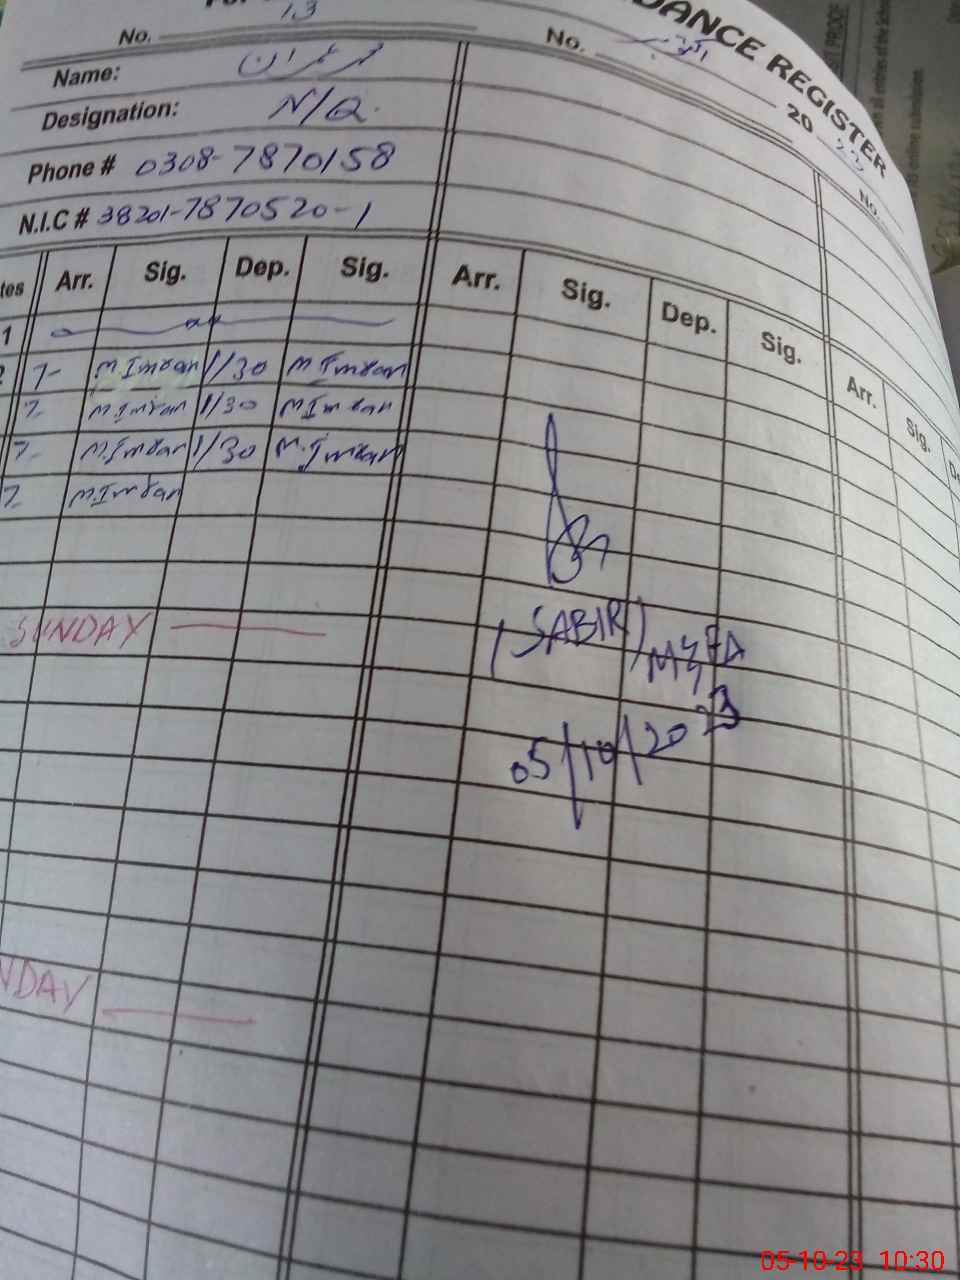 DANCE REGISTER
No. 13
No.
20 23
No.
Name: محمد عمران
Designation: N/Q.
Phone # 0308-7870158
N.I.C # 38201-7870520-1
tes Arr. Sig. Dep. Sig. Arr. Sig. Dep. Sig. Arr. Sig.
1
7- M.Imran 1/30 M.Imran
7- M.Imran 1/30 M.Imran
7- M.Imran 1/30 M.Imran
7- M.Imran
SUNDAY
(SABIR) M&EA
05/10/2023
NDAY
05-10-23 10:30